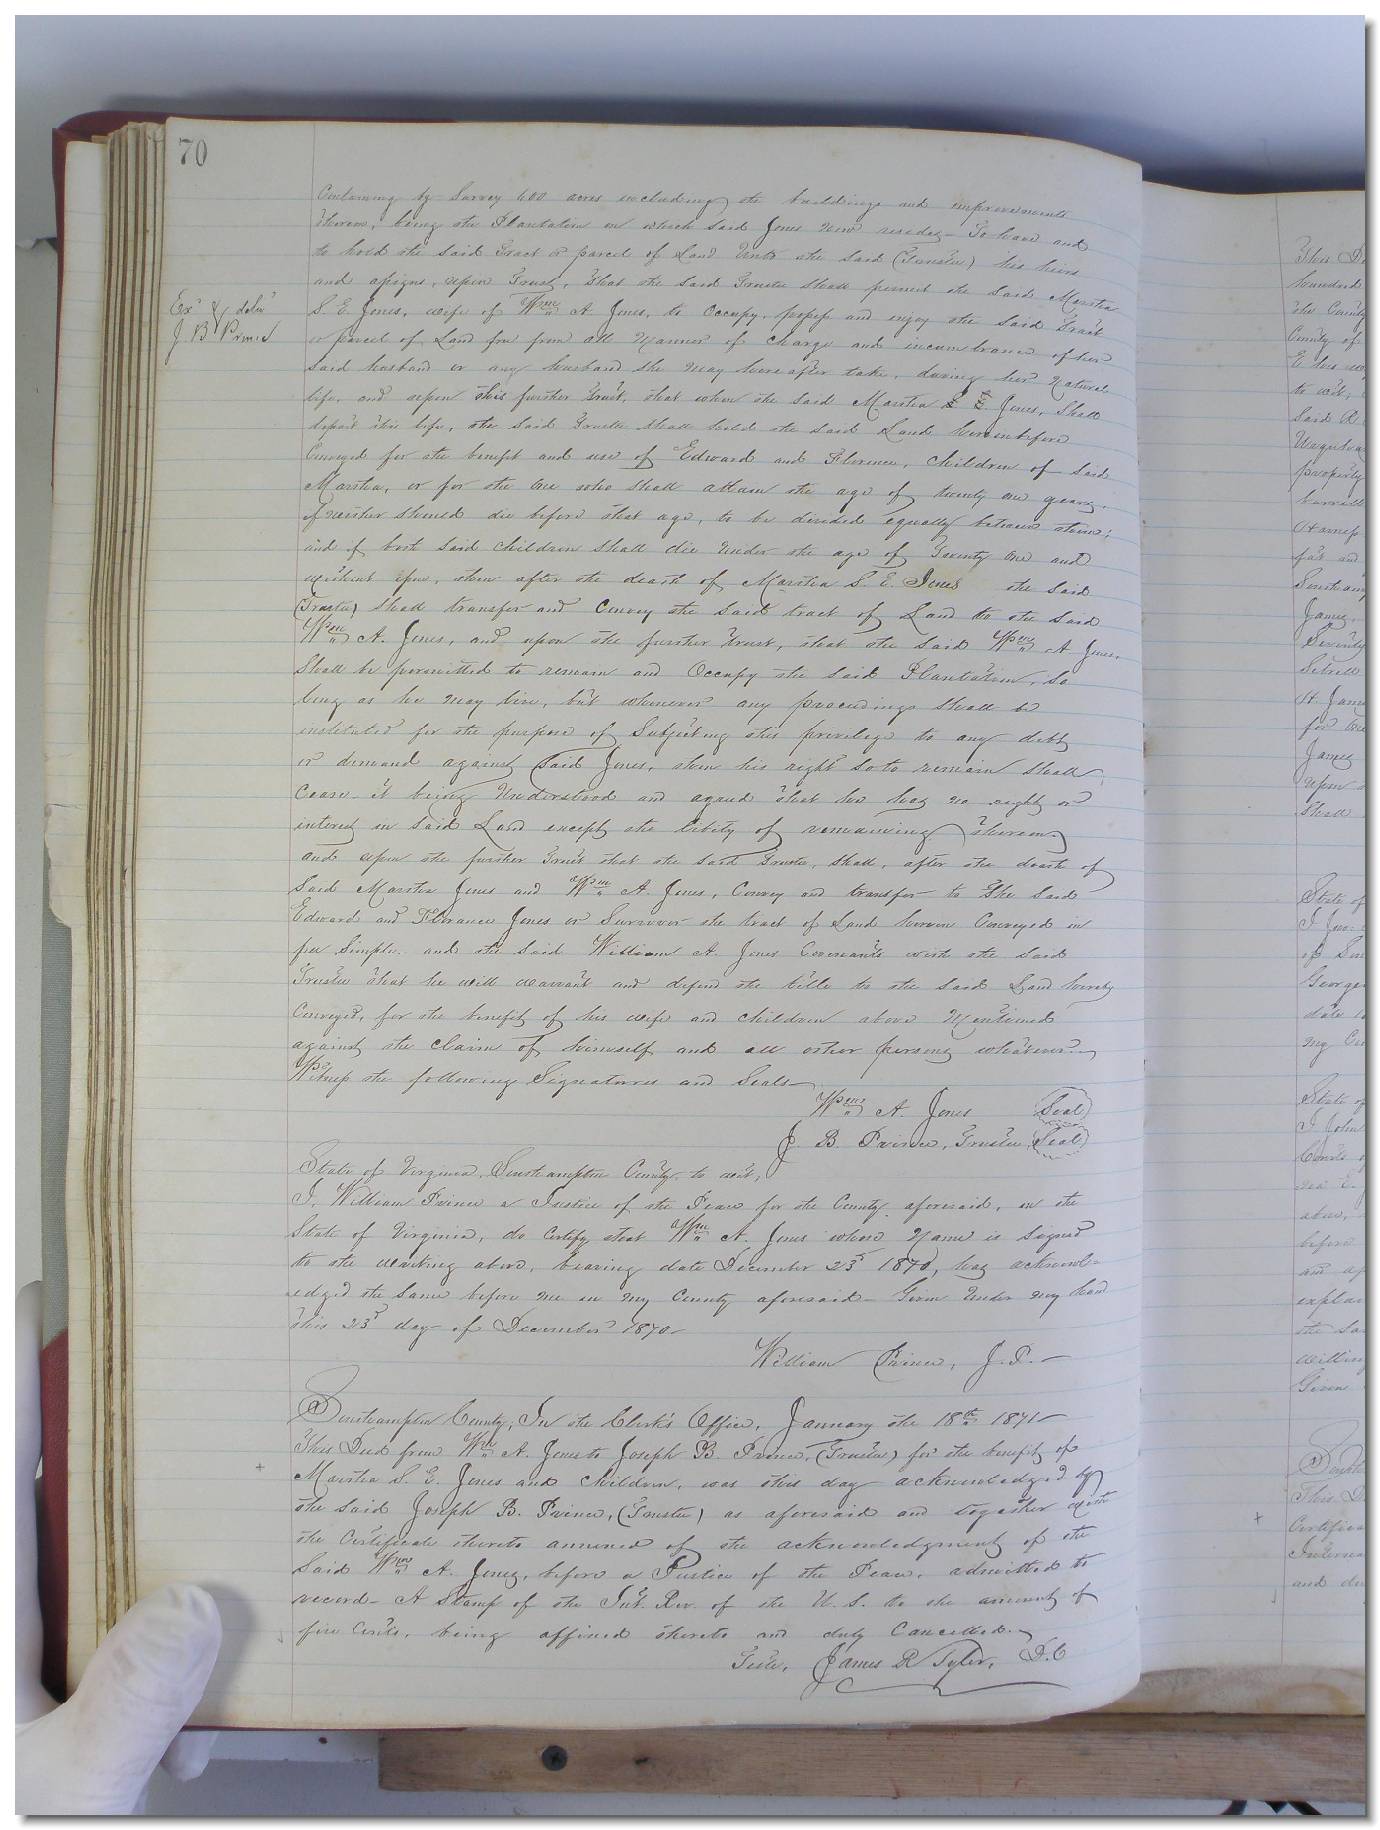 70
Containing by Survey 600 acres including the buildings and improvements
thereon, being the Plantation on which said Jones now resides – To have and
to hold the said Tract or parcel of Land unto the said (Trustee) his heirs
and assigns, upon Trust, that the said Trustee shall permit the said Martha
Exd & deld
J. B. Prince
S. E. Jones, wife of Wm A. Jones, to Occupy, possess and enjoy the said Tract
or parcel of Land free from all manner of charge and incumbrance of her
said husband or any husband she may hereafter take, during her natural
life, and upon this further Trust, that when the said Martha S. E. Jones, shall
depart this life, the said Trustee shall hold the said Land hereinbefore
Conveyed for the benefit and use of Edward and Florence, children of said
Martha, or for the one who shall attain the age of twenty one years,
if neither should die before that age, to be divided equally between them;
and if both said children shall die under the age of Twenty One and
without issue, then after the death of Martha S. E. Jones the said
(Trustee) shall transfer and Convey the said tract of Land to the said
Wm A. Jones, and upon the further trust, that the said Wm A Jones,
shall be permitted to remain and Occupy the said Plantation, so
long as he may live, but whenever any proceedings shall be
instituted for the purpose of Subjecting this privilege to any debt
or demand against said Jones, then his right so to remain shall
Cease – it being Understood and agreed that he has no rights or
interest in said Land except the liberty of remaining thereon
and upon the further Trust that the said Trustee, shall, after the death of
Said Martha Jones and Wm A. Jones, Convey and transfer to the said
Edward and Florance Jones or Survivor the tract of Land herein Conveyed in
fee Simple. and the said William A. Jones Covenants with the said
Trustee that he will warrant and defend the title to the said Land hereby
Conveyed, for the benefit of his wife and children above Mentioned
against the claim of himself and all other persons whatever –
Witness the following Signatures and Seals –
Wm A. Jones (Seal)
J. B. Prince, Trustee (Seal)
State of Virginia, Southampton County, to wit,
I, William Prince a Justice of the Peace for the County aforesaid, in the
State of Virginia, do Certify that Wm A. Jones whose Name is Signed
to the writing above, bearing date December 23d 1870, has acknowl=
edged the same before me in my County aforesaid – Given Under my hand
this 23d day of December 1870 –
William Prince, J.P. –
Southampton County; In the Clerk's Office, January the 18th 1871 –
This Deed from Wm A. Jones to Joseph B. Prince, (Trustee) for the benefit of
+
Martha S. E. Jones and Children, was this day acknowledged by
the said Joseph B. Prince, (Trustee) as aforesaid and together with
the Certificate thereto annexed of the acknowledgment of the
Said Wm A. Jones, before a Justice of the Peace, admitted to
record – A Stamp of the Int. Rev. of the U. S. to the amount of
five Cents, being affixed thereto and duly Cancelled. –
Teste, James R Tyler, D.C
hundred
the County
County of
to wit;
said R
property
James
State of
of Sou
George
State of
I John
before
Given
+
Certifica
and du